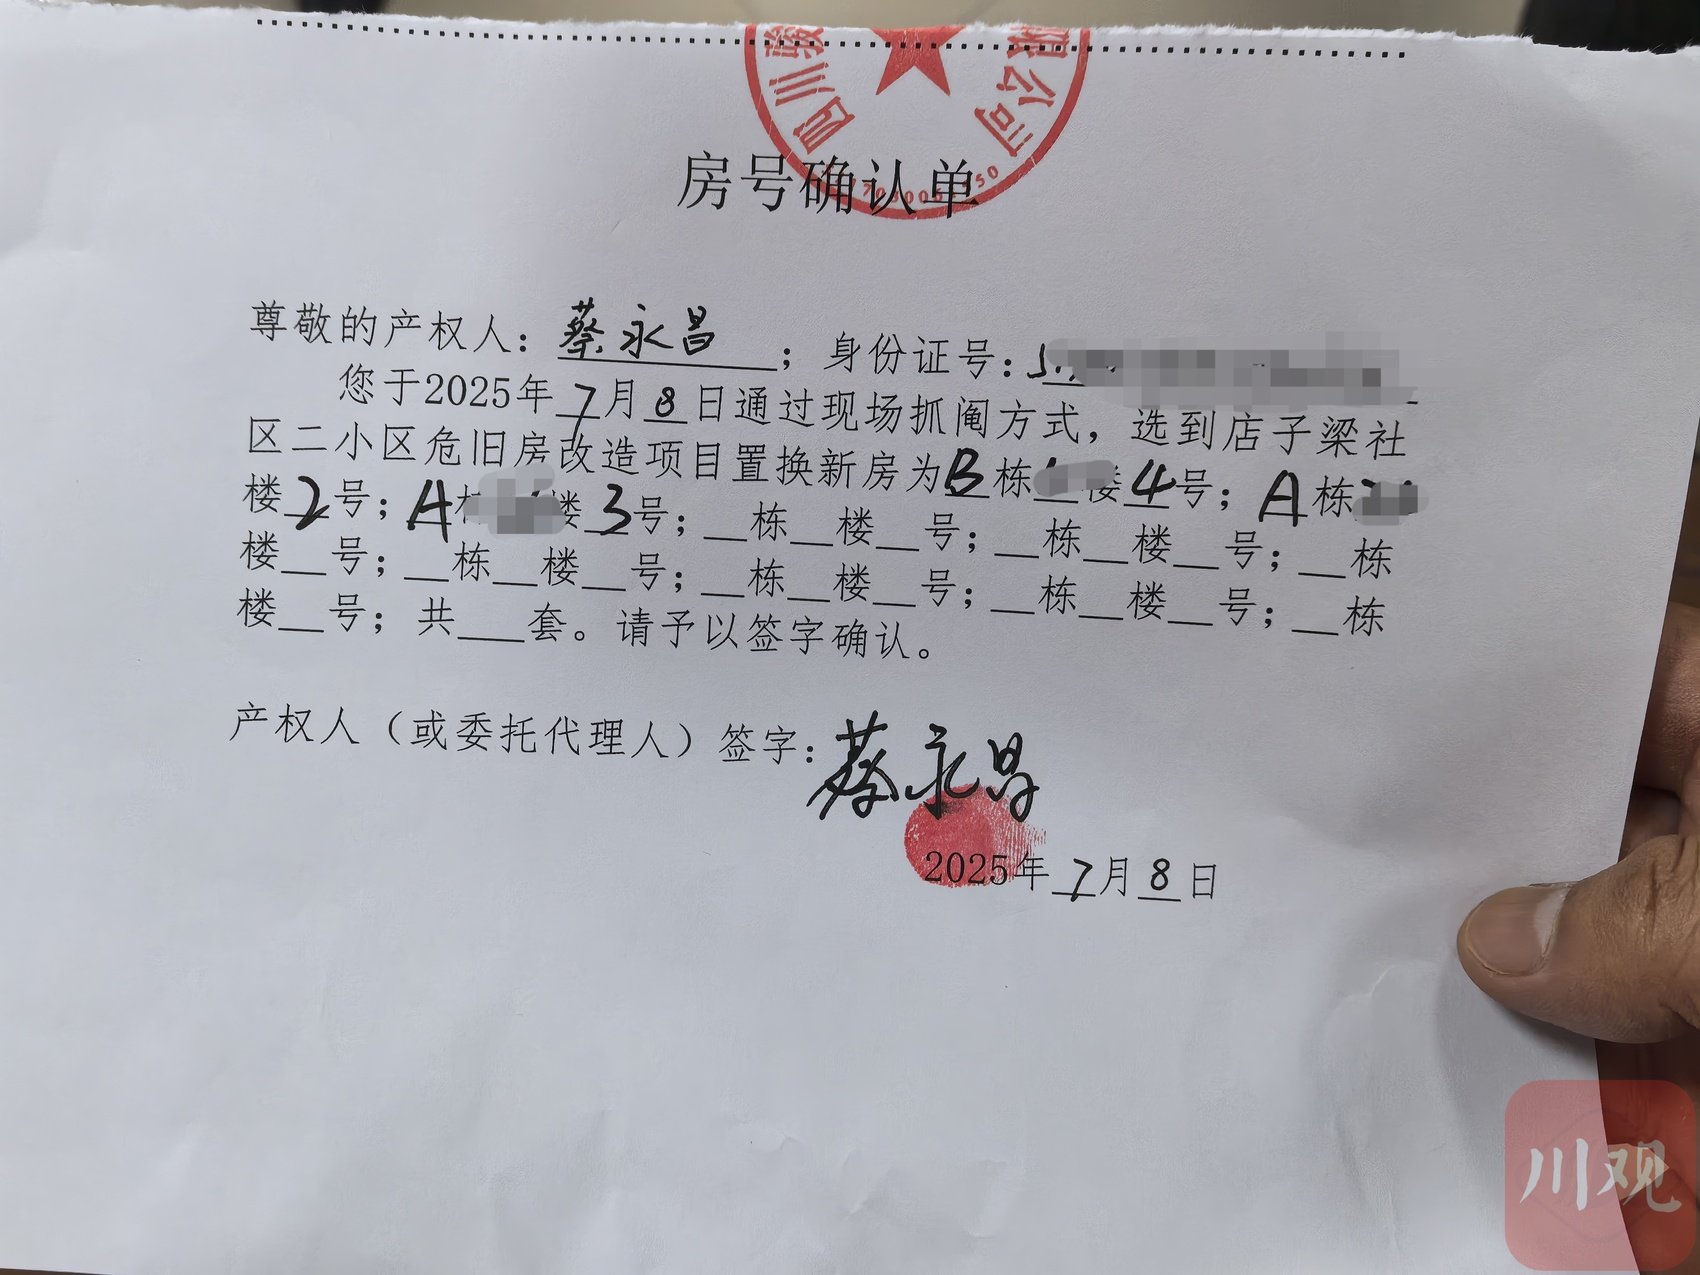 四川骏 限公司
房号确认单
尊敬的产权人：蔡永昌；身份证号：
您于2025年7月8日通过现场抓阄方式，选到店子梁社
区二小区危旧房改造项目置换新房为B栋__楼4号；A栋
楼2号；A栋 楼3号；__栋__楼__号；__栋__楼__号；__栋
楼__号；__栋__楼__号；__栋__楼__号；__栋__楼__号；__栋
楼__号；共___套。请予以签字确认。
产权人（或委托代理人）签字：蔡永昌
2025年7月8日
川观